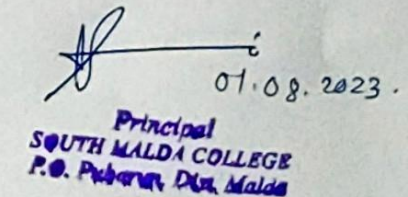 01.08.2023.
Principal
SOUTH MALDA COLLEGE
P.O. Dist. Malda